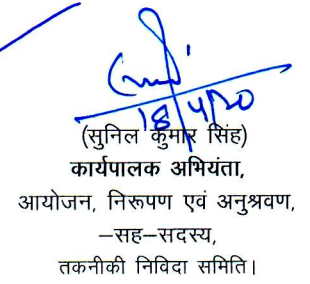 18/4/20
(सुनिल कुमार सिंह)
कार्यपालक अभियंता,
आयोजन, निरूपण एवं अनुश्रवण,
–सह–सदस्य,
तकनीकी निविदा समिति।